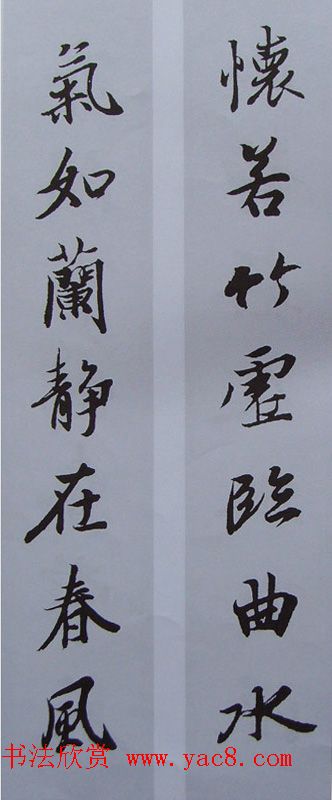 懷若竹虛臨曲水
氣如蘭靜在春風
书法欣赏 www.yac8.com